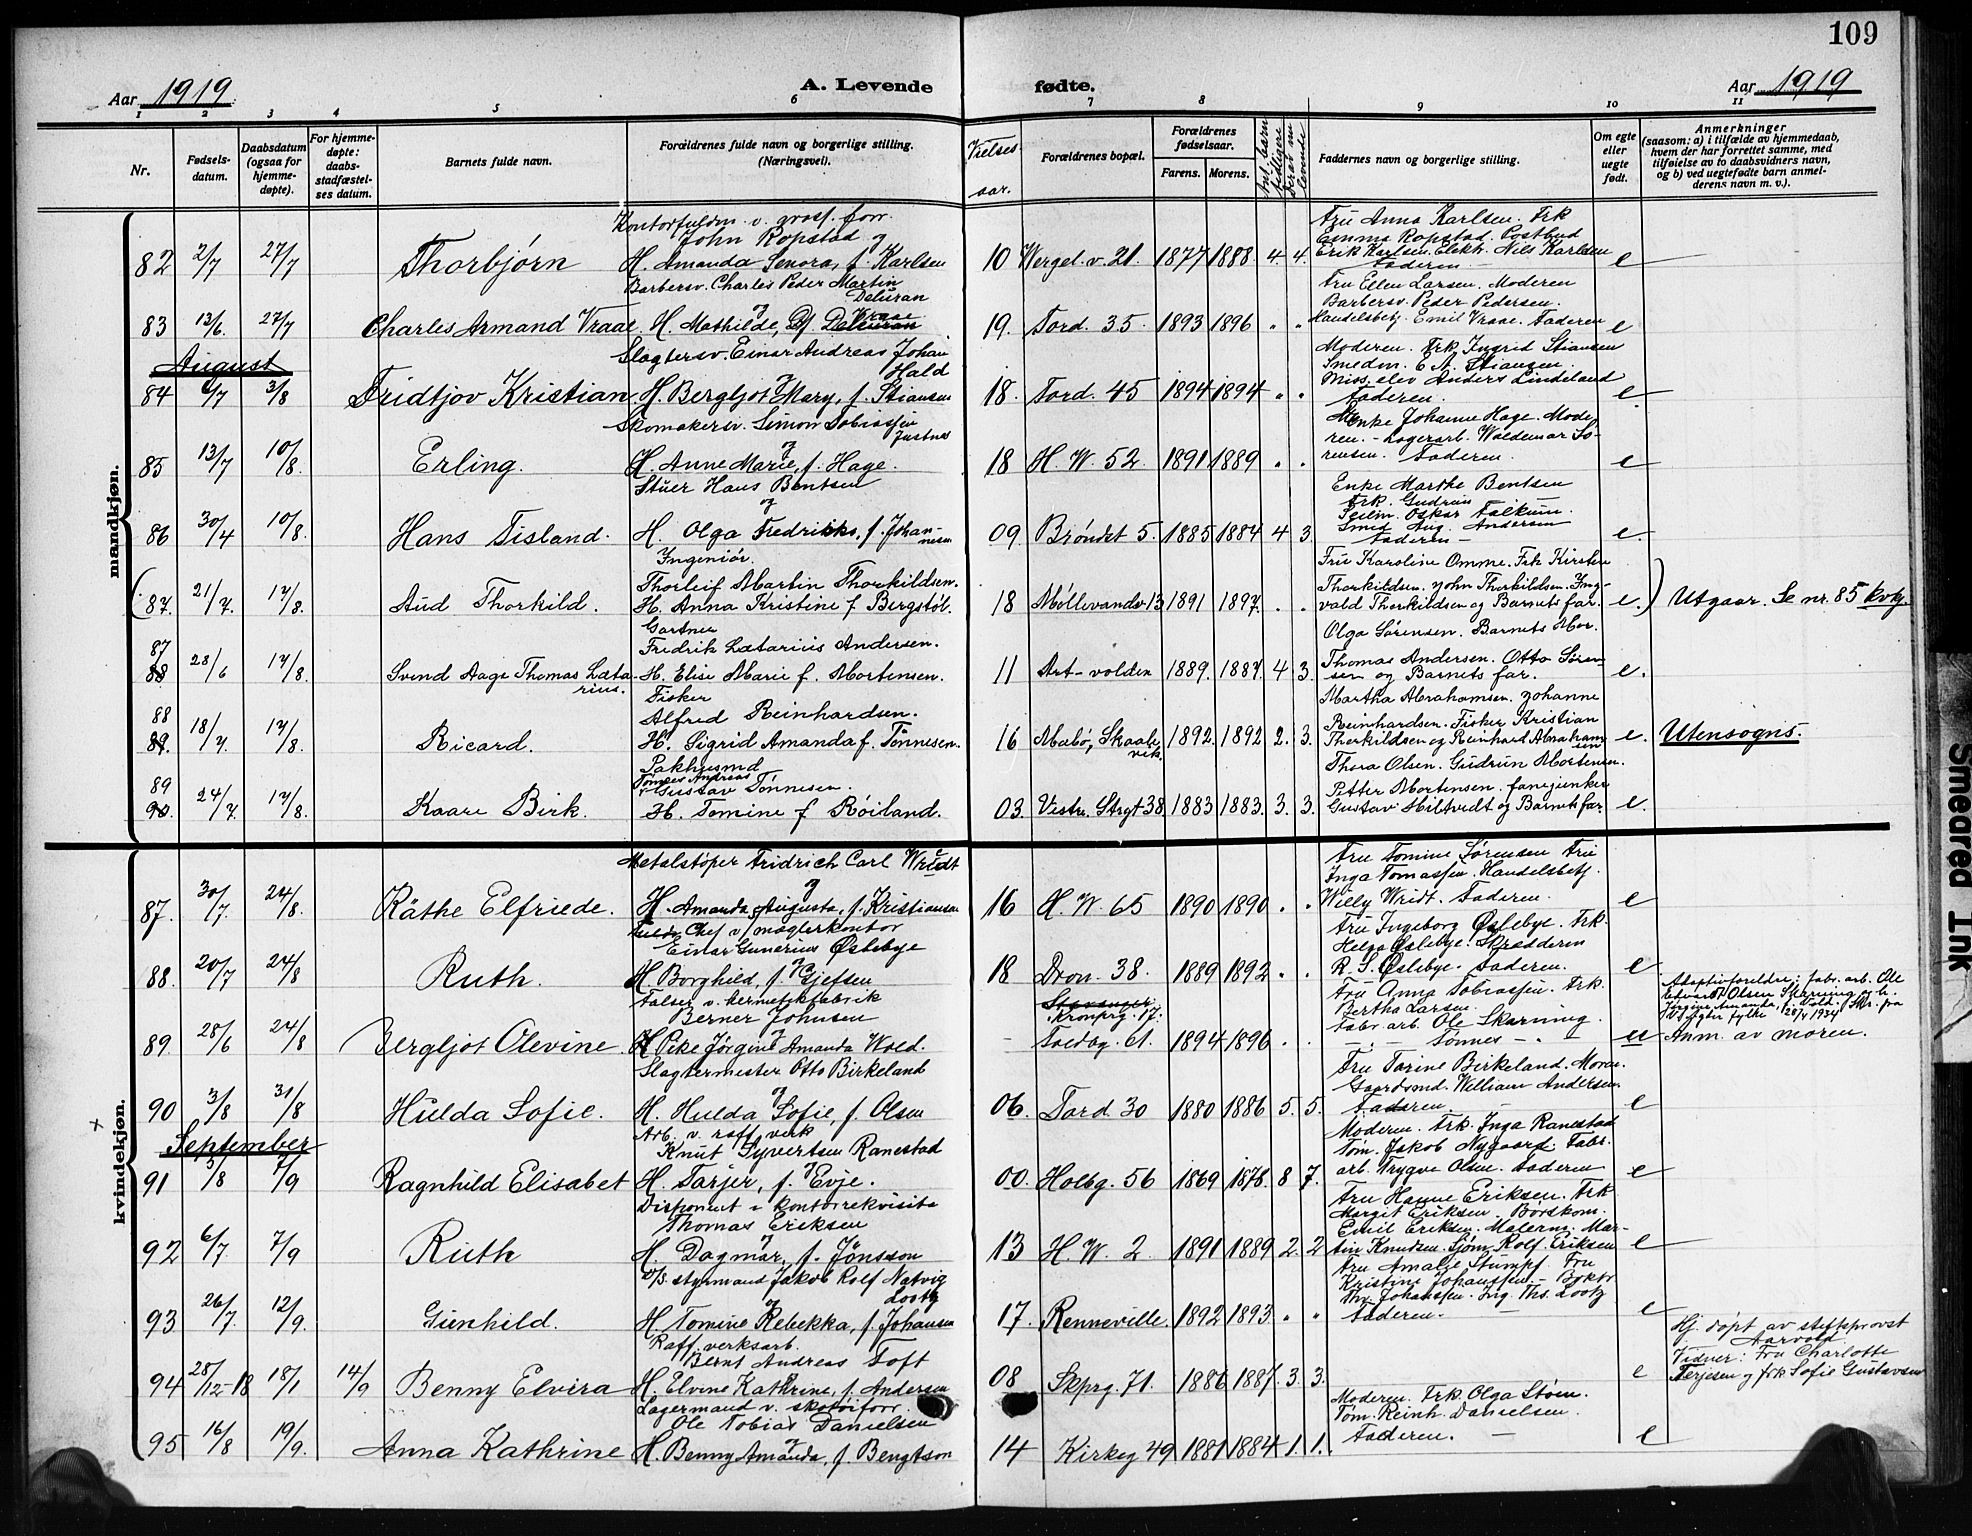 109
Aar 1919.
A. Levende
fødte.
Aar 1919
1 2 3 4 5 6 7 8 9 10 11
Nr.
Fødsels-
datum.
Daabsdatum
(ogsaa for
hjemme-
døpte).
For hjemme-
døpte:
daabs-
stadfæstel-
ses datum.
Barnets fulde navn.
Forældrenes fulde navn og borgerlige stilling.
(Næringsvei).
Vielses-
aar.
Forældrenes bopæl.
Forældrenes
fødselsaar.
Farens. Morens.
Ant. barn
tidligere
Derav nu
levende
Faddernes navn og borgerlige stilling.
Om egte
eller
uegte
født.
Anmerkninger
(saasom: a) i tilfælde av hjemmedaab,
hvem der har forrettet samme, med
tilføielse av to daabsvidners navn,
og b) ved uegtefødte barn anmel-
derens navn m. v.).
mandkjøn.
82 2/7 27/7 Thorbjørn
Kontorfuldm. v. gross. forr.
John Ropstad og
H. Amanda Senora, f. Karlsen
10 Wergel. v. 21. 1877 1888 4. 4.
Fru Anna Karlsen. Frk
Emma Ropstad. Postbud
Erik Karlsen. Elektr. Nils Karlsen
Faderen — e
83 13/6. 27/7 Charles Armand Vraae
Barbersv. Charles Peder Martin
Deluran
og Vraae
H. Mathilde, f. Deluran
19. Tord. 35. 1893 1896 " "
Fru Ellen Larsen. Moderen
Barbersv. Peder Pedersen.
Handelsbetj. Emil Vraae. Faderen e
August
84 6/7 3/8 Fridtjov Kristian
Slagtersv. Einar Andreas Johan
Hald
og
H. Bergljot Mary, f. Stiansen
18. Tord. 45 1894 1894 " "
Moderen. Frk Ingrid Stiansen
Smedm. E A. Stiansen.
Miss. elev Anders Lindeland
Faderen. e
85 13/7 10/8. Erling.
Skomakersv. Simon Tobiassen
Justnes
og
H. Anne Marie, f. Hage.
18 H. W. 52. 1891 1889 . .
Enke Johanne Hage. Mode-
ren. - Lagerarb. Waldemar Sø-
rensen. Faderen. e
86 30/4 10/8. Hans Tisland.
Stuer Hans Bentsen
og
H. Olga Fredrikke, f. Johan-
nesen
09. Brøndst 5. 1885 1884 4 3.
Enke Marthe Bentsen
Frk. Gudrun
Seilm. Oskar Falkum.
Smed Aug. Andersen
Faderen — e.
(87. 21/7. 17/8. Aud Thorkild.
Ingeniør.
Thorleif Martin Thorkildsen.
H. Anna Kristine f Bergstøl.
18 Møllevandsv 13 1891 1897. . .
Fru Karoline Omme. Frk Kirsten
Thorkildsen. John Thorkildsen. Ing-
vald Thorkildsen og Barnets far. e.)
Utgaar. Se nr. 85 kvkj.
87
88 28/6 17/8. Svend Aage Thomas Læta
rius.
Gartner
Fredrik Lætarius Andersen.
H. Elise Marie f. Mortensen.
11 Art-volden 1889. 1887. 4 3.
Olga Sørensen. Barnets Mor.
Thomas Andersen. Otto Søren-
sen og Barnets far. e.
88
89. 18/7. 17/8. Ricard.
Fisker
Alfred Reinhardsen.
H. Sigrid Amanda f. Tønnesen.
16 Mæbø, Skaale
vik. 1892. 1892 2. 3.
Martha Abrahamsen. Johanne
Reinhardsen. Fisker Kristian
Thorkildsen og Reinhard Abraham
sen e.
Utensogns.
89
90. 24/7. 17/8. Kaare Birk.
Pakhusmd
Tønnes Andreas
Gustav Tønnesen.
H. Tomine f Røiland.
03. Vestre Strgt 38 1883 1883. 3. 3.
Thora Olsen. Gudrun Mortensen.
Petter Mortensen. fanejunker
Gustav Hiltvedt og Barnets far. e.
kvindekjøn.
87. 30/7. 24/8. Käthe Elfriede.
Metalstøper Fridrich Carl Wriedt
og
H. Amanda Augusta, f. Kristiansen
16 H. W. 65 1890 1890 . .
Fru Tomine Sørensen Fru
Inga Tomassen. Handelsbetj.
Willy Wridt. Faderen. e
88. 20/7 24/8 Ruth.
Chef v/ mæglerkontor
Einar Gunerius Øslebye
og
H Borghild, f. Gjefsen
18 Dron. 38. 1889 1892 . .
Fru Ingeborg Øslebye. Frk.
Helga Øslebye. Skrædderm
R. S. Øslebye. Faderen. e
89. 28/6 24/8 Bergljot Olevine
Falser v. hermetikfabrik
Berner Johnsen
og
H Pike Jørgine Amanda Wold.
- Stavanger
Kronprg. 17.
Toldbg. 61. 1894 1896 . .
Fru Anna Tobiassen. Frk.
Bertha Larsen.
Fabr. arb. Ole Skarning.
— " — Tønnes — " — u
Adoptivforeldre: fabr. arb. Ole
Edvardt Olsen Skarning o. h.
Jørgine Amanda, f. Vold. Skr. fra
V. Agder fylke 28/4 1934
Anm. av moren.
90 3/8 31/8 Hulda Sofie.
Slagtermester Otto Birkeland
og
H. Hulda Sofie, f. Olsen
06. Tord. 30 1880 1886 5. 5.
Fru Tarine Birkeland. Moren.
Gaardsmd. William Andersen.
Faderen — e
×
September
91 5/8 7/9 Ragnhild Elisabet
Arb. v. raff. verk
Knut Syvertsen Ranestad
og
H. Tarjer, f. Evje.
00. Holbg. 56 1869 1878. 8 7.
Moderen. Frk. Inga Ranestad
Tøm. Jakob Nygaard. Fabr.
arb. Trygve Olsen. Faderen e
92 6/7. 7/9 Ruth
Disponent i kontorrekvisita
Thomas Eriksen
og
H. Dagmar, f. Jönsson
13 H. W. 2. 1891 1889 2. 2
Fru Hanne Eriksen. Frk
Margit Eriksen. Børskom.
Emil Eriksen. Malerm. Mar-
tin Knudsen. Sjøm. Rolf Eriksen e
93 26/7. 12/9. Gunhild.
D/S. styrmand Jakob Rolf Natvig
Lootz
og
H Tomine Rebekka, f. Johansen
17. Renneville. 1892 1893. " "
Fru Amalie Stumpf. Fru
Kristine Johanssen. — Boktr
Thv. Johanssen. Ing. Ths. Lootz
Faderen. — e
94 28/12-18 18/1 14/9 Benny Elvira
Raff. verksarb.
Bernt Andreas Toft
H. Elvine Kathrine, f. Andersen
08 Skprg. 71. 1886 1887. 3. 3. e
Hj. døpt av stiftsprovst
Aarvold
Vidner: Fru Charlotte
Terjesen og frk Sofie Gustavsen
95 16/8 19/9. Anna Kathrine
Lagermand v. skotøiforr.
Ole Tobias Danielsen
og
H. Benny Amanda, f. Bengtson
14 Kirkeg 49 1881 1884 1. 1.
Moderen. Frk. Olga Støen.
Tøm. Reinh. Danielsen.
Faderen. — e
Smeared Ink